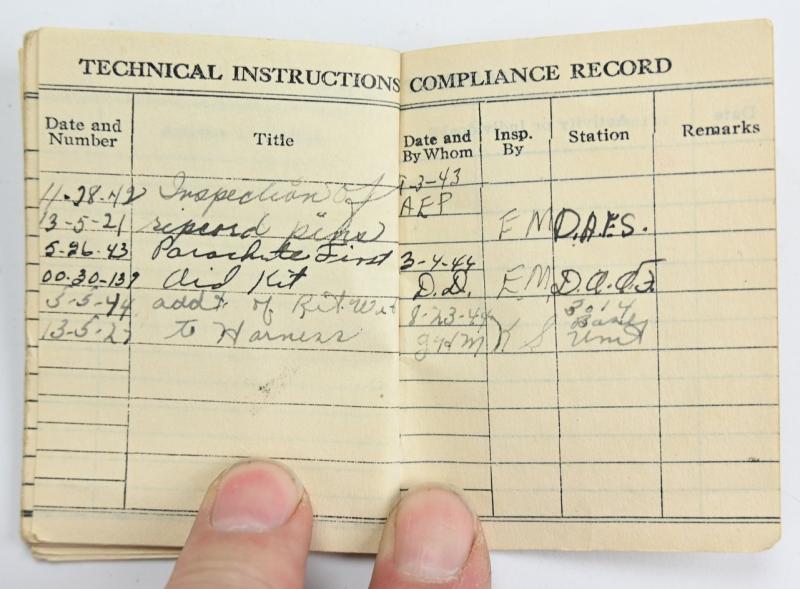 TECHNICAL INSTRUCTIONS COMPLIANCE RECORD
Date and Number Title Date and By Whom Insp. By Station Remarks
11-28-42 Inspection of 9-3-43
13-5-21 ripcord pins AEP E M D.A.E.S.
5-26-43 Parachute First 3-4-44
00-30-139 Aid Kit D.D. E.M.
5-5-44 addt. of Ret. 8-23-44 3014 Base
13-5-27 to Harness K S Unit